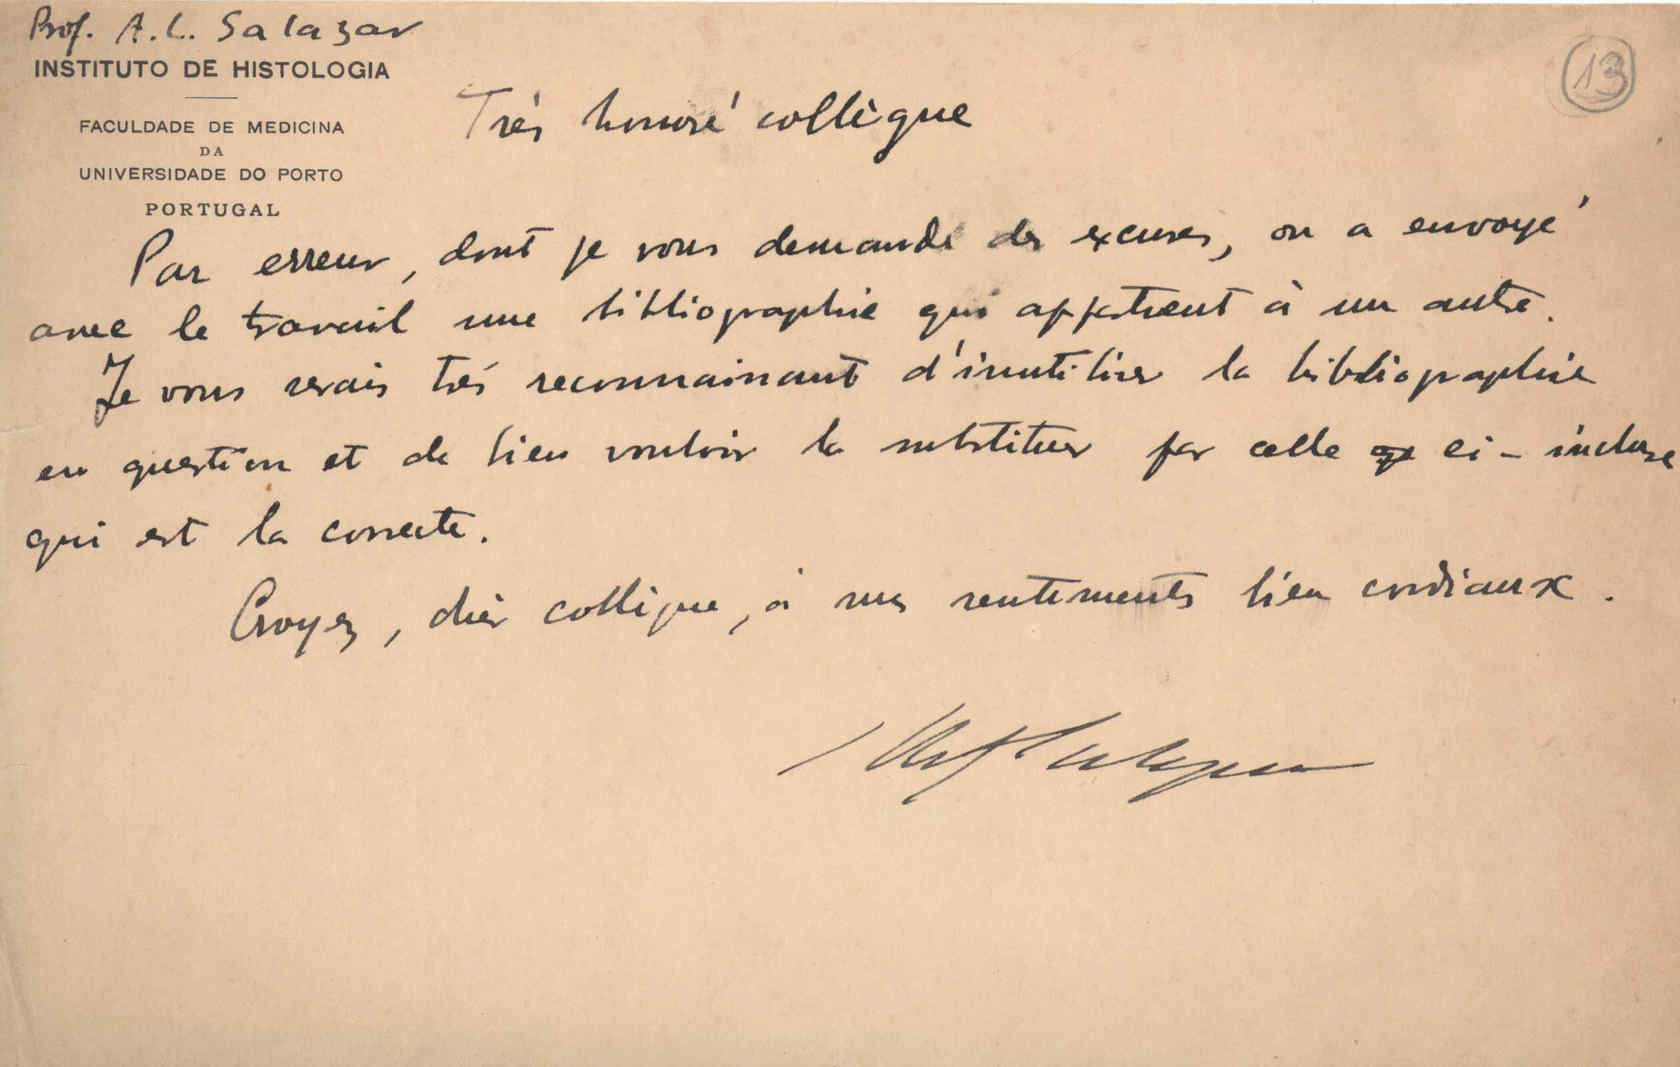 Prof. A. L. Salazar
INSTITUTO DE HISTOLOGIA
FACULDADE DE MEDICINA
DA
UNIVERSIDADE DO PORTO
PORTUGAL
13
Très honoré collègue
Par erreur, dont je vous demande des excuses, on a envoyé
avec le travail une bibliographie qui appartient à un autre.
Je vous serais très reconnaissant d'inutiliser la bibliographie
en question et de bien vouloir la substituer par celle ci-incluse
qui est la correcte.
Croyez, cher collègue, à mes sentiments bien cordiaux.